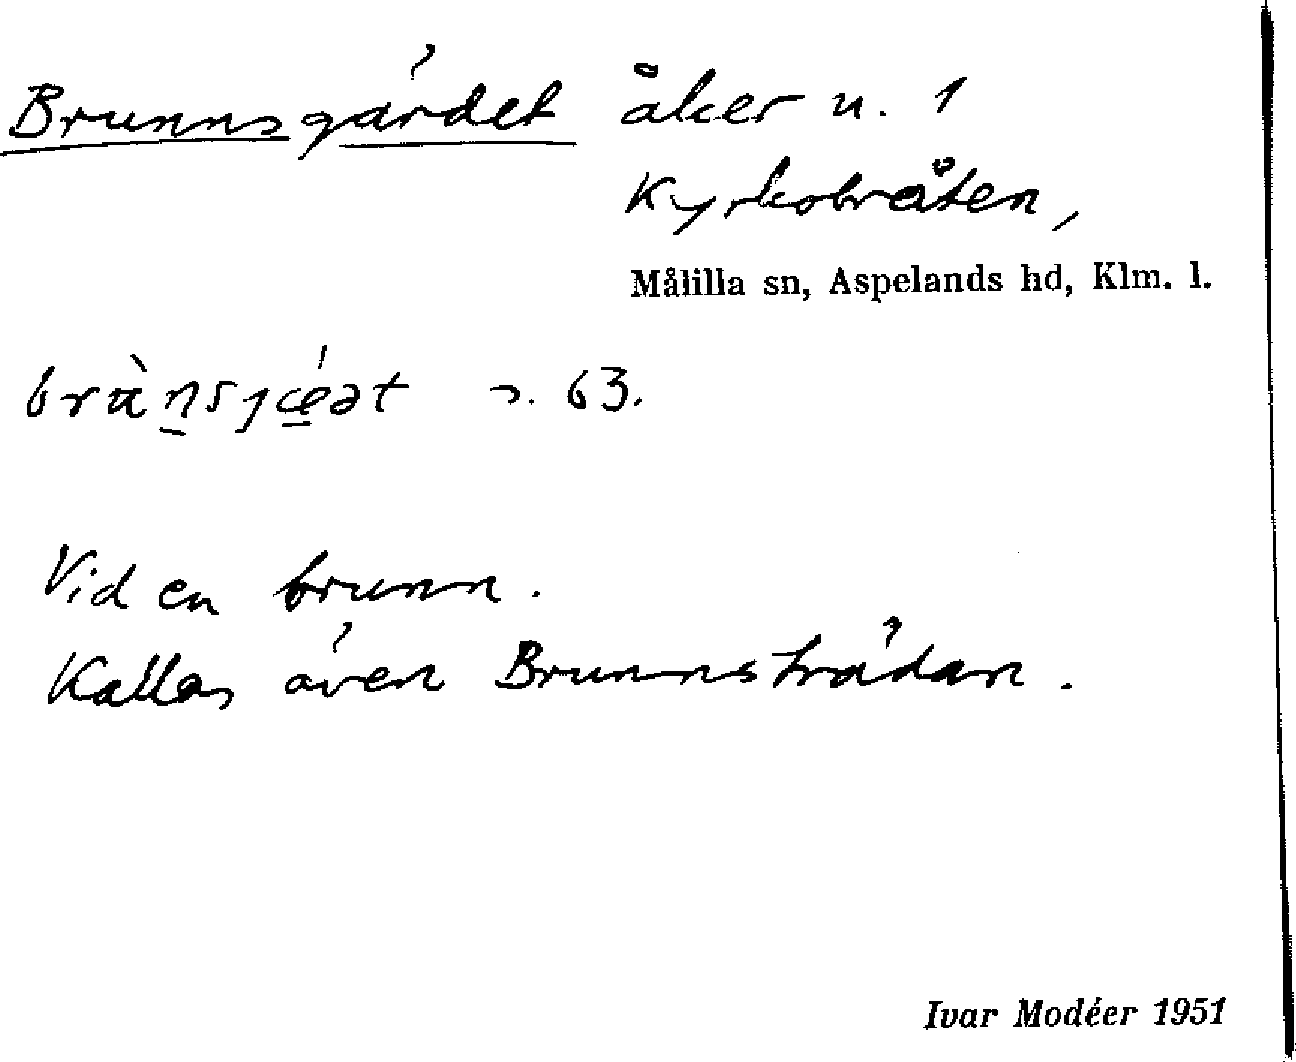 Brunnsgärdet åker u. 1
Kyrkobråten,
Målilla sn, Aspelands hd, Klm. l.
63.
Vid en brunn.
Kallas även Brunnsträdan.
Ivar Modéer 1951